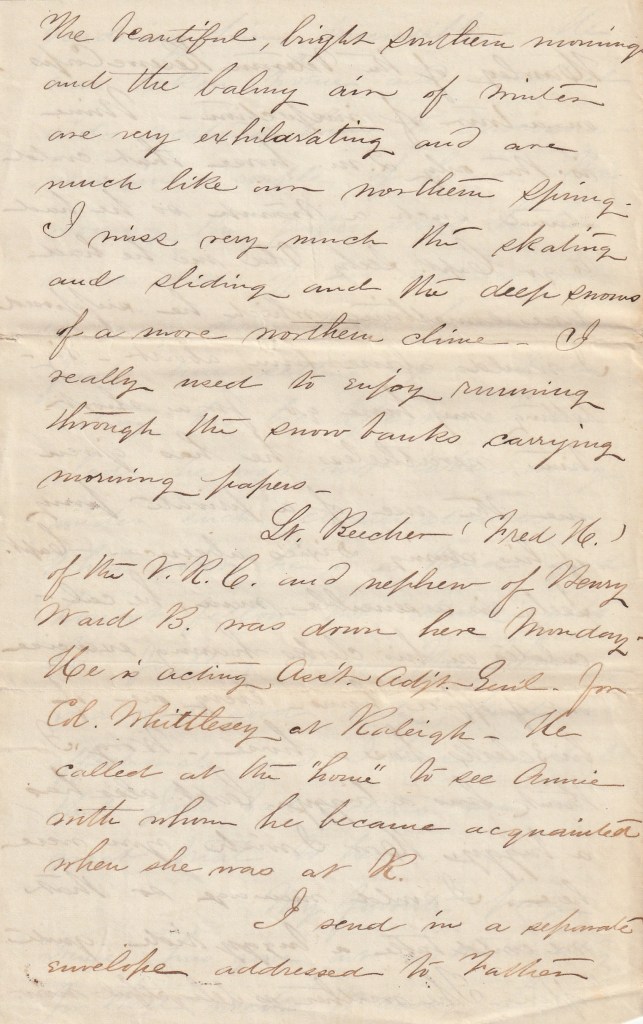 The beautiful, bright southern mornings
and the balmy air of winter
are very exhilarating and are
much like our northern spring.
I miss very much the skating
and sliding and the deep snows
of a more northern clime - I
really used to enjoy running
through the snow banks carrying
morning papers -
Lt. Beecher (Fred H.)
of the V. R. C. and nephew of Henry
Ward B. was down here Monday -
He is acting Ass't. Adjt. Genl. for
Col. Whittlesey at Raleigh - He
called at the "home" to see Annie
with whom he became acquainted
when she was at R.
I send in a separate
envelope addressed to Father